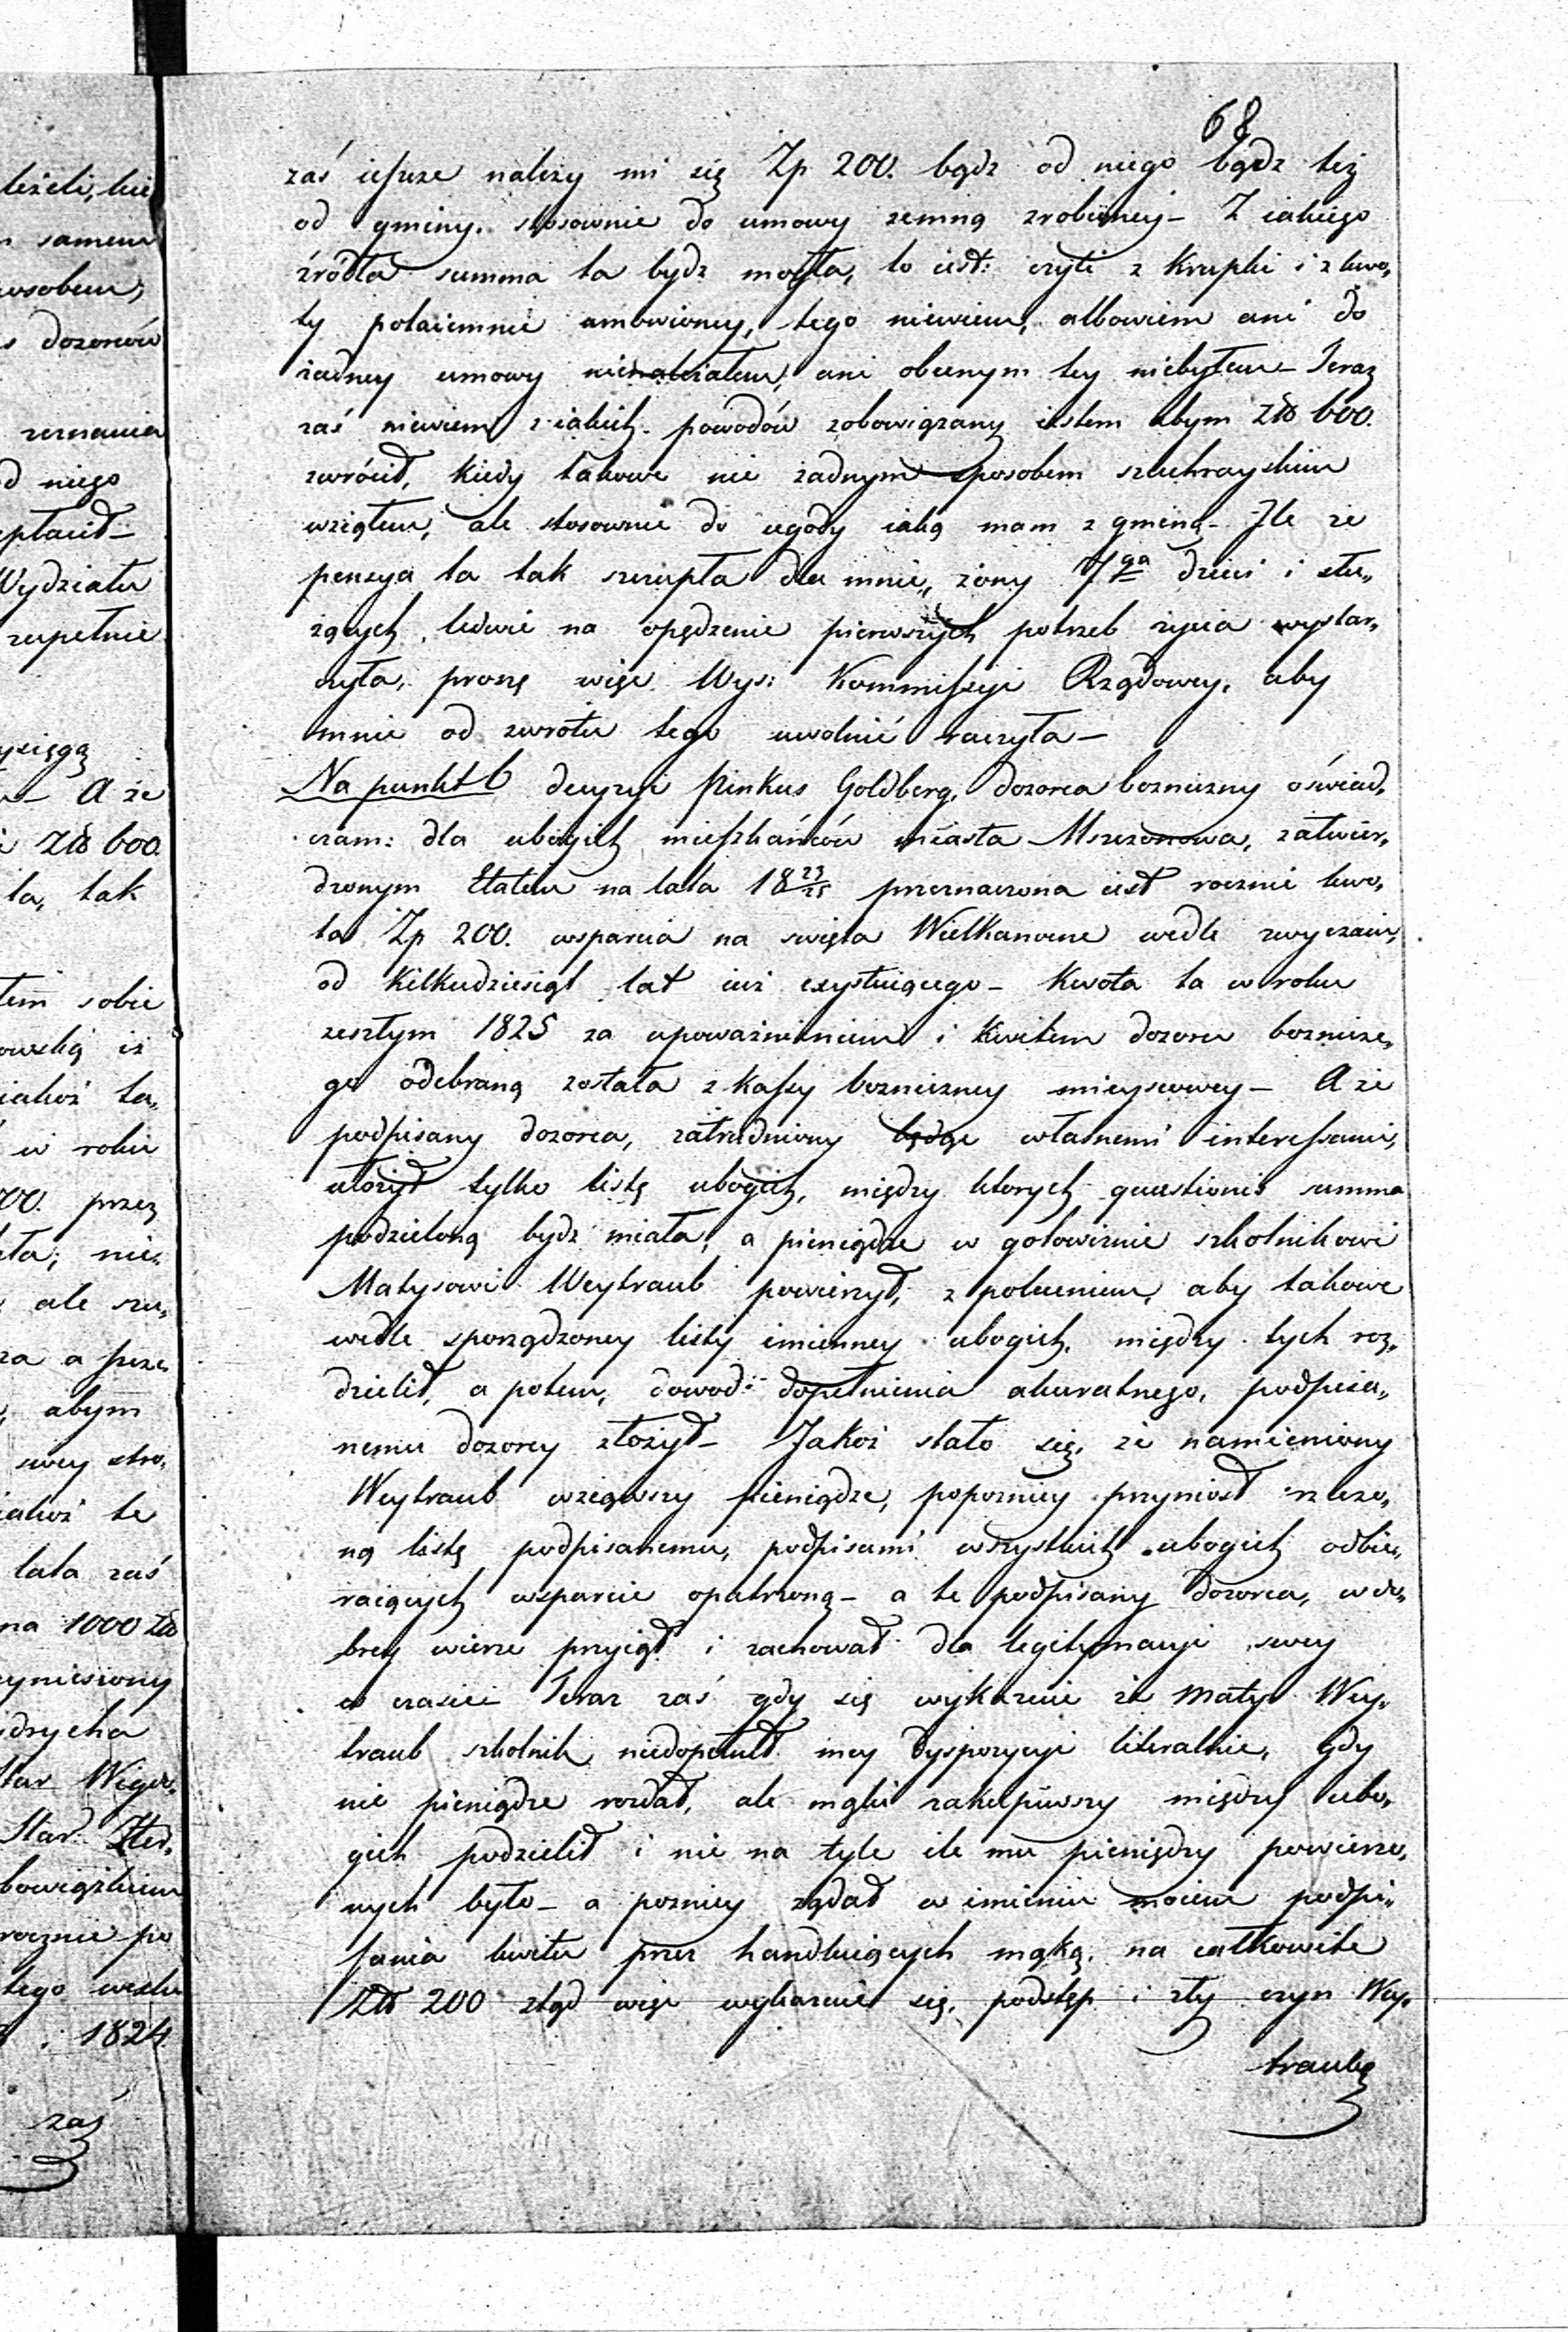 68
zaś ieszcze należy mi się Zp 200. bądz od niego bądz też
od gminy. stosownie do umowy zemną zrobioney – Z iakiego
źródła summa ta bydz mogła, to iest: czyli z Krupki i z kwo„
ty potaiemnie umowioney, tego niewiem, albowiem ani do
żadney umowy nienależałem, ani obecnym tey niebyłem – Teraz
zaś niewiem z iakich powodów zobowiązany iestem abym Zło 600.
zwrócił, kiedy takowe nie żadnym sposobem szachrayskim
wziąłem, ale stosownie do ugody iaką mam z gminą – Ile że
pensya ta tak szczupła dla mnie, żony 7ga dzieci i słu„
żących, ledwie na opędzenie pierwszych potrzeb życia wystar„
czyła, proszę więc Wys: Kommissyi Rządowey, aby
mnie od zwrotu tego uwolnić raczyła –
Na punkt 6 decyzyi Pinkus Goldberg, dozorca bozniczny oświad„
czam: dla ubogich mieszkańców miasta Mszczonowa, zatwier„
dzonym Etatem na lata 18 23/25 przeznaczona iest rocznie kwo„
ta Zp 200. wsparcia na swięta Wielkanocne wedle zwyczaiu,
od Kilkudziesiąt lat iuż exystuiącego – Kwota ta w roku
zeszłym 1825 za upoważnieniem i Kwitem dozoru boznicze„
go odebraną została z Kassy bozniczney mieyscowey – A że
podpisany dozorca, zatrudniony będąc własnemi interessami,
ułożył tylko listę ubogich, między ktorych quaestionis summa
podzieloną bydz miała, a pieniądze w gotowiznie szkolnikowi
Matysowi Weytraub powierzył, z poleceniem, aby takowe
wedle sporządzoney listy imienney ubogich, między tych roz„
dzielił, a potem, dowod dopełnienia akuratnego, podpisa„
nemu dozorcy złożył – Jakoż stało się, że namieniony
Weytraub wziąwszy pieniądze, popozniey przyniosł rzeczo„
ną listę podpisanemu, podpisami wszystkich ubogich odbie„
raiących wsparcie opatrzoną – a te podpisany Dozorca, w do„
brey wierze przyiął i zachował dla legitymacyi swey
w czasie – Teraz zaś gdy się wykazuie że Matys Wey„
traub szkolnik, niedopełnił mey dyspozycyi literalnie, gdy
nie pieniądze rozdał, ale mąki zakupiwszy między ubo„
gich podzielił i nie na tyle ile mu pieniędzy powierzo„
nych było – a pozniey żądał w imieniu moiem podpi„
sania kwitu przez handluiących mąką, na całkowite
Zło 200 ztąd więc wykazuie się, podstęp i zły czyn Wey„
trauba